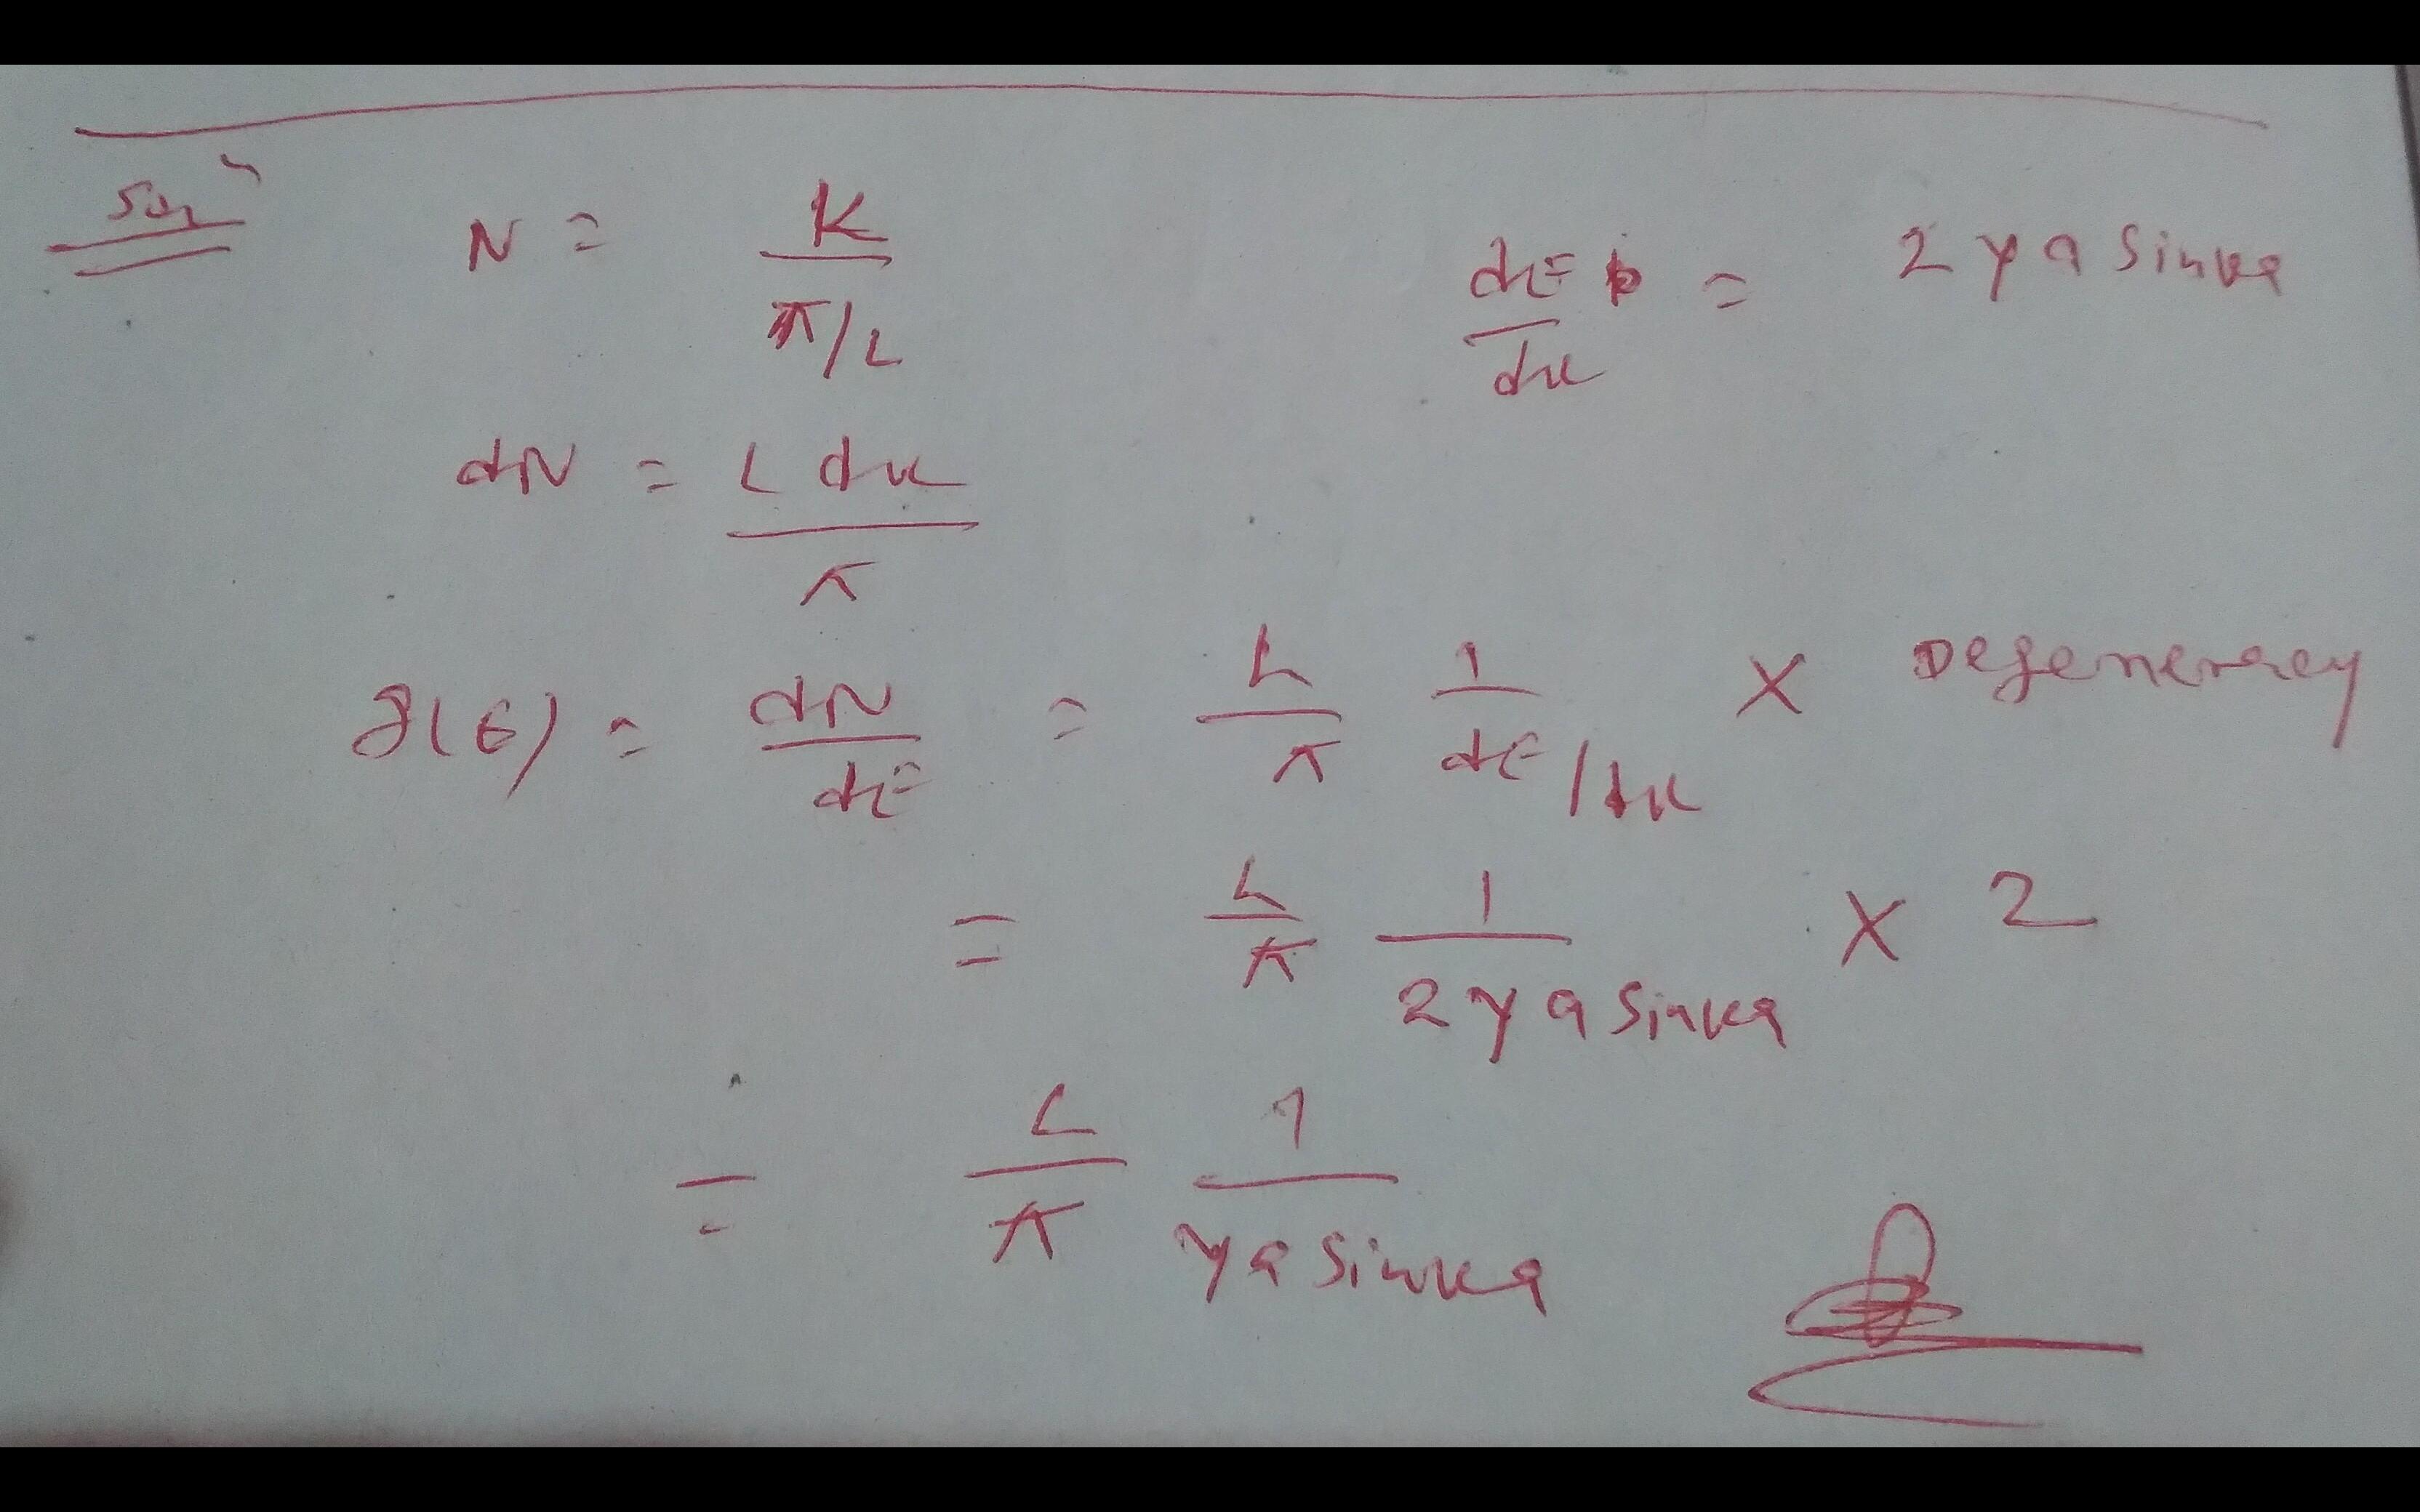 Soln
N = K / π/L
dE/dk = 2γa Sinka
dN = L dk / π
g(E) = dN/dE = L/π 1/dE/dk × Degeneracy
= L/π 1/2γa Sinka × 2
= L/π 1/γa Sinka